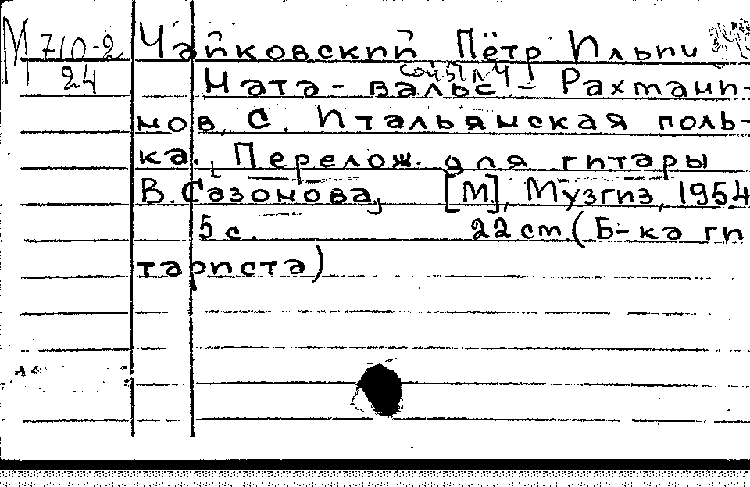 М 710-2 Чайковский Пётр Ильи
24
соч 51 № 4
Ната-вальс - Рахмани-
нов, С. Итальянская поль-
ка. Перелож. для гитары
В. Сазонова, [М], Музгиз, 1954
5 с. 22 см. (Б-ка ги
тариста)